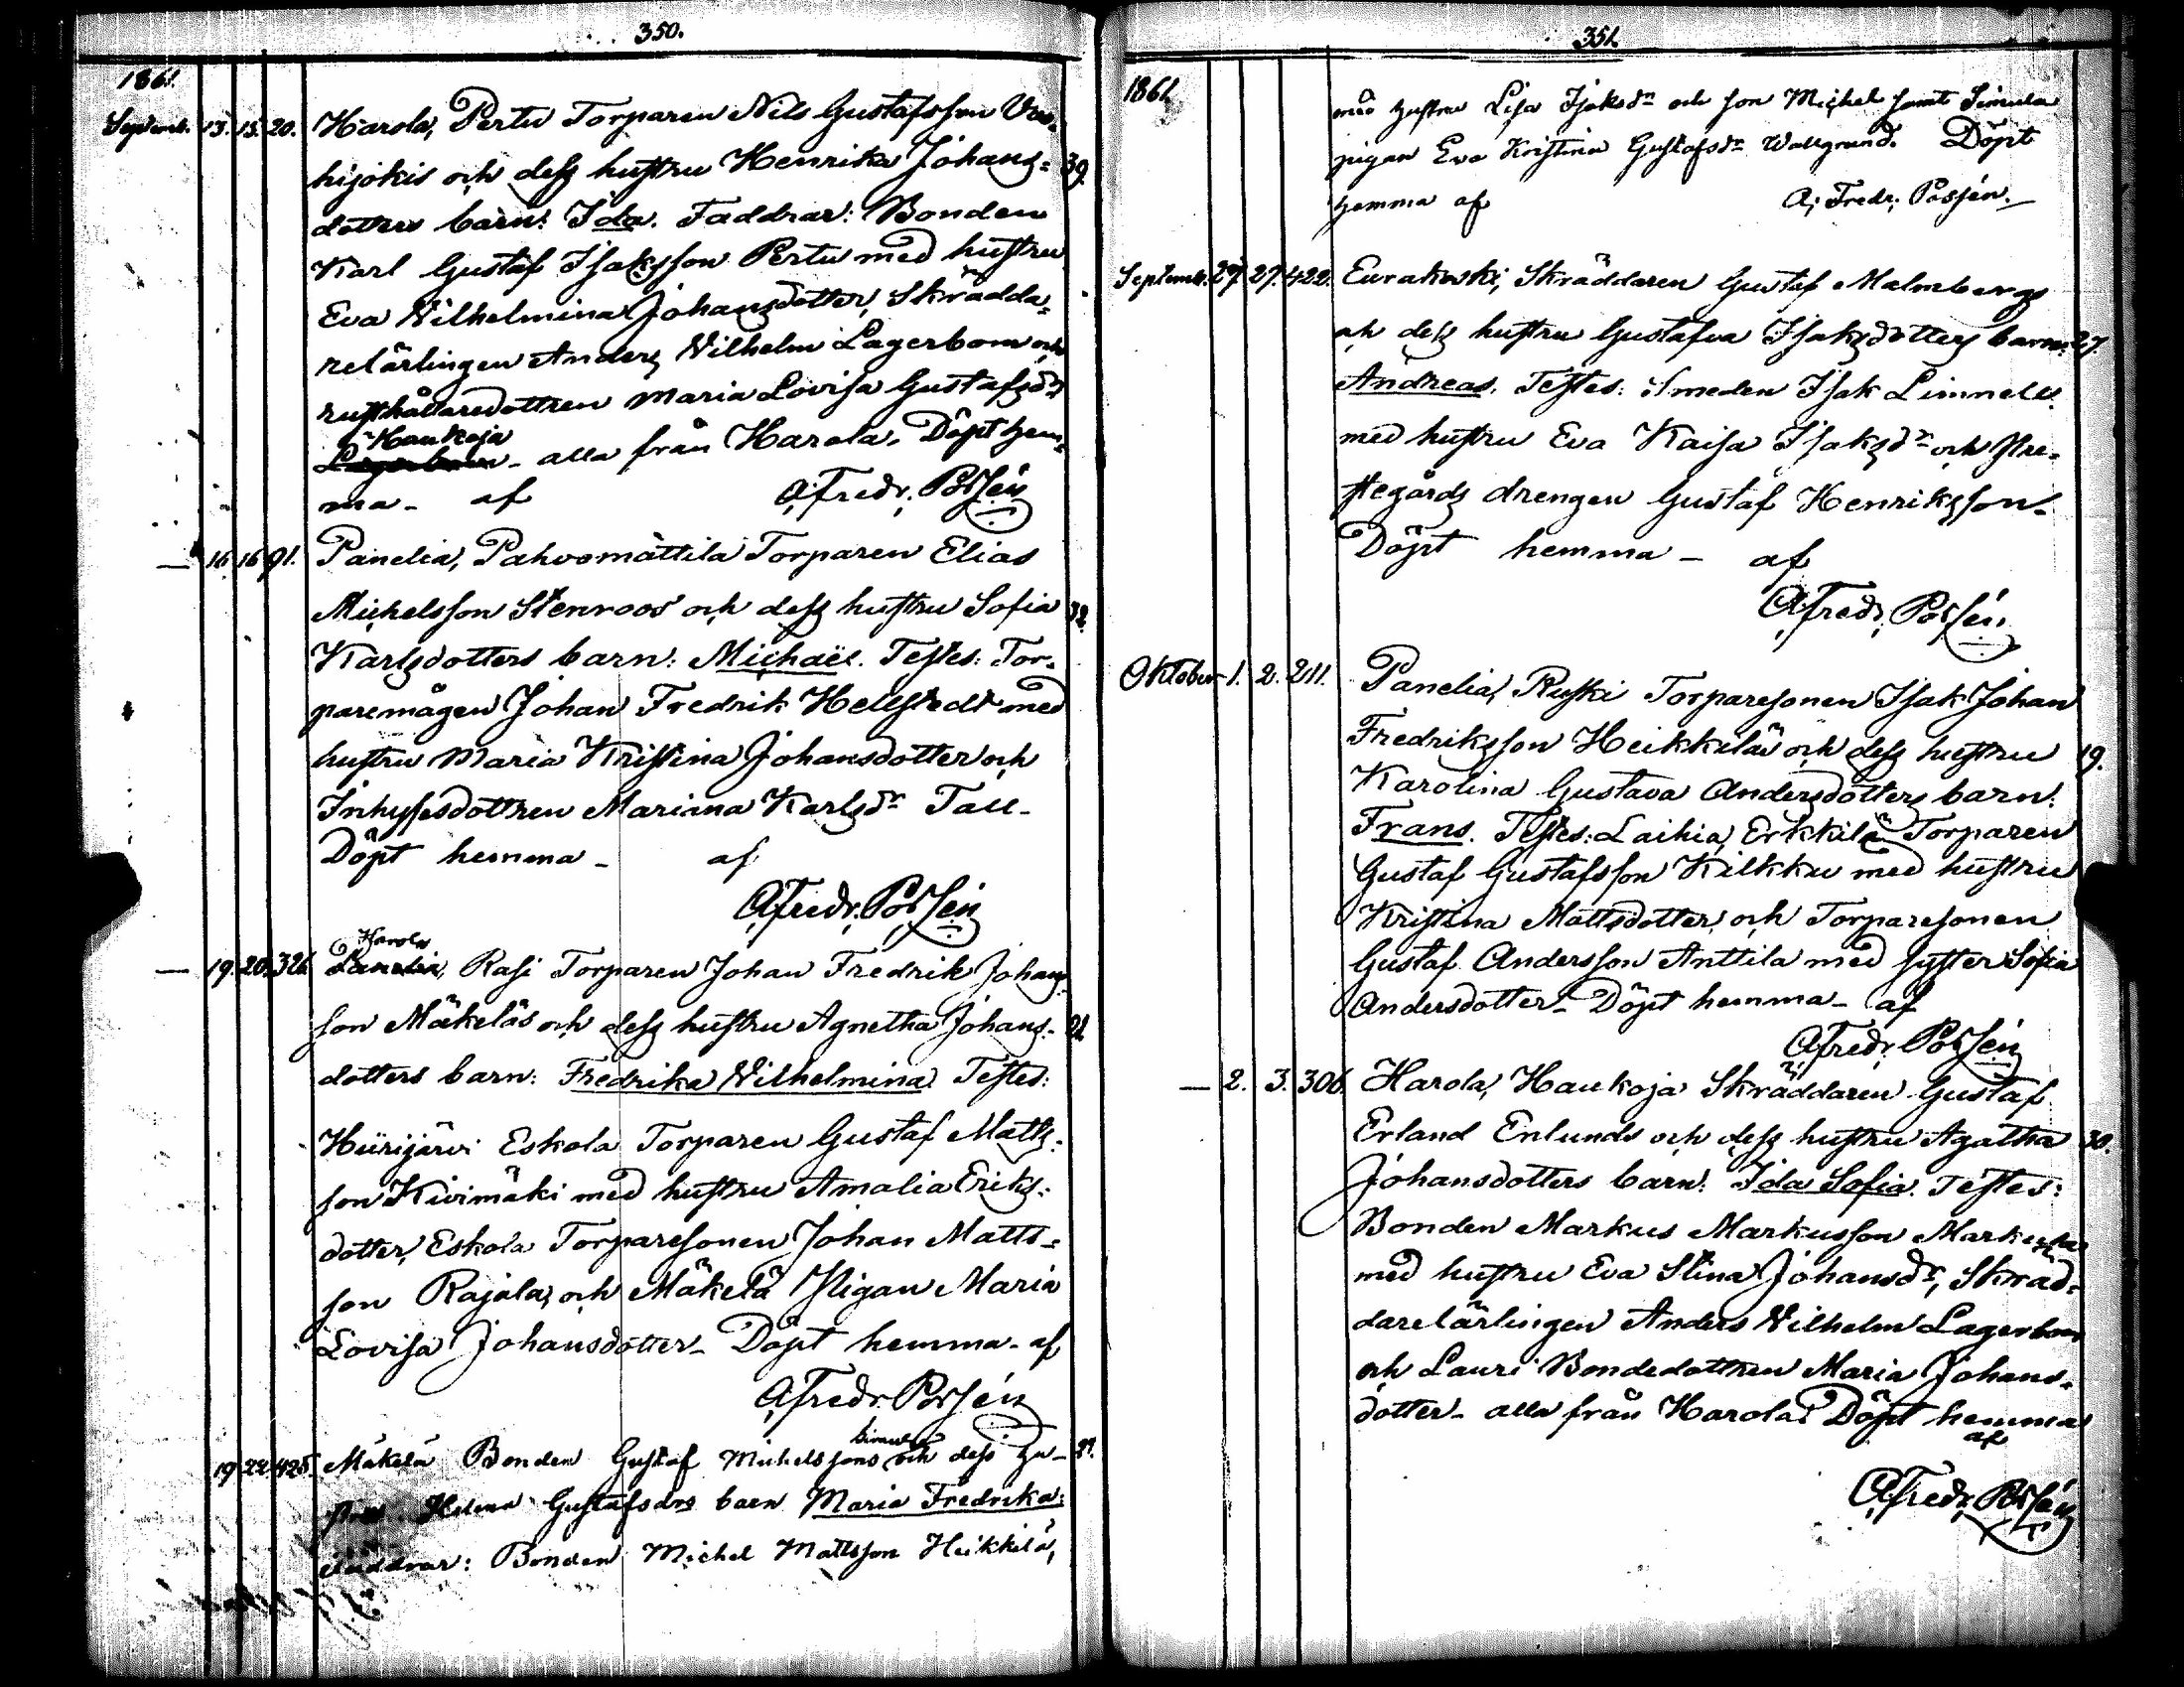 350.
1861.
Septemb. 13. 15. 20. Harola, Pertu Torparen Nils Gustafsson Va-
hijokis och dess hustru Henrika Johans- 39.
dotters barn: Ida. Faddrar: Bonden
Karl Gustaf Isaksson Pertu med hustru
Eva Wilhelmina Johansdotter, Skrädda-
relärlingen Anders Wilhelm Lagerbom och
rusthållaredottren Maria Lovisa Gustafsdr
Haukoja
Lagerbom - alla från Harola. Döpt hem-
ma - af A. Fredr. Possén
— 16. 16. 91. Panelia, Pahvomättila Torparen Elias
Michelsson Stenroos och dess hustru Sofia 32.
Karlsdotters barn: Michaël. Testes: Tor-
paremågen Johan Fredrik Hellstedt med
hustru Maria Kristina Johansdotter och
Inhysesdottren Marina Karlsdr Tall -
Döpt hemma - af
A. Fredr. Possén
Harola
— 19. 20. 326. Panelia, Rasi Torparen Johan Fredrik Johans-
son Mäkeläs och dess hustru Agnetha Johans- 21.
dotters barn: Fredrika Wilhelmina. Testes:
Hiirijärvi Eskola Torparen Gustaf Matts-
son Kivimäki med hustru Amalia Eriks-
dotter, Eskola Torparesonen Johan Matts-
son Rajala, och Mäkelä Pigan Maria
Lovisa Johansdotter - Döpt hemma - af
A. Fredr. Possén
Simula
19 22 425. Mäkelä Bonden Gustaf Michelssons och dess hu- 27.
stru Helena Gustafsdrs barn Maria Fredrika:
Faddrar: Bonden Michel Mattsson Heikkilä,
351.
1861.
med hustru Lisa Isaksdr och son Michel samt Simula
pigan Eva Kristina Gustafsdr Wallgrund. Döpt
hemma af A. Fredr. Possén. -
Septemb. 27. 27. 422. Eurakoski, Skräddaren Gustaf Malmbergs
och dess hustru Gustafva Isaksdotters barn: 27.
Andreas. Testes: Smeden Isak Limnell
med hustru Eva Kaisa Isaksdr och Pre-
stegårds drengen Gustaf Henriksson -
Döpt hemma - af
A. Fredr. Possén
Oktober 1. 2. 211. Panelia, Ruski Torparesonen Isak Johan
Fredriksson Heikkiläs och dess hustru 19.
Karolina Gustava Andersdotters barn:
Frans. Testes: Laihia, Erkkilä Torparen
Gustaf Gustafsson Kilkku med hustru
Kristina Mattsdotter, och Torparesonen
Gustaf Andersson Anttila med syster Sofia
Andersdotter - Döpt hemma - af
A. Fredr. Possén
— 2. 3. 306. Harola, Haukoja Skräddaren Gustaf
Erland Enlunds och dess hustru Agatha 30.
Johansdotters barn: Ida Sofia. Testes:
Bonden Markus Markusson
med hustru Eva Stina Johansdr, Skräd-
darelärlingen Anders Wilhelm Lagerbom
och Lauri Bondedottren Maria Johans-
dotter - alla från Harola. Döpt hemma
af
A. Fredr. Possén